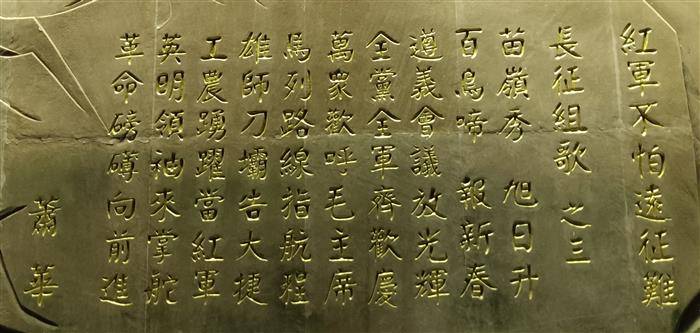 紅軍不怕遠征難
長征組歌 之三
苗嶺秀 旭日升
百鳥啼 報新春
遵義會議放光輝
全黨全軍齊歡慶
萬衆歡呼毛主席
馬列路線指航程
雄師刀壩告大捷
工農踴躍當紅軍
英明領袖來掌舵
革命磅礴向前進
蕭華